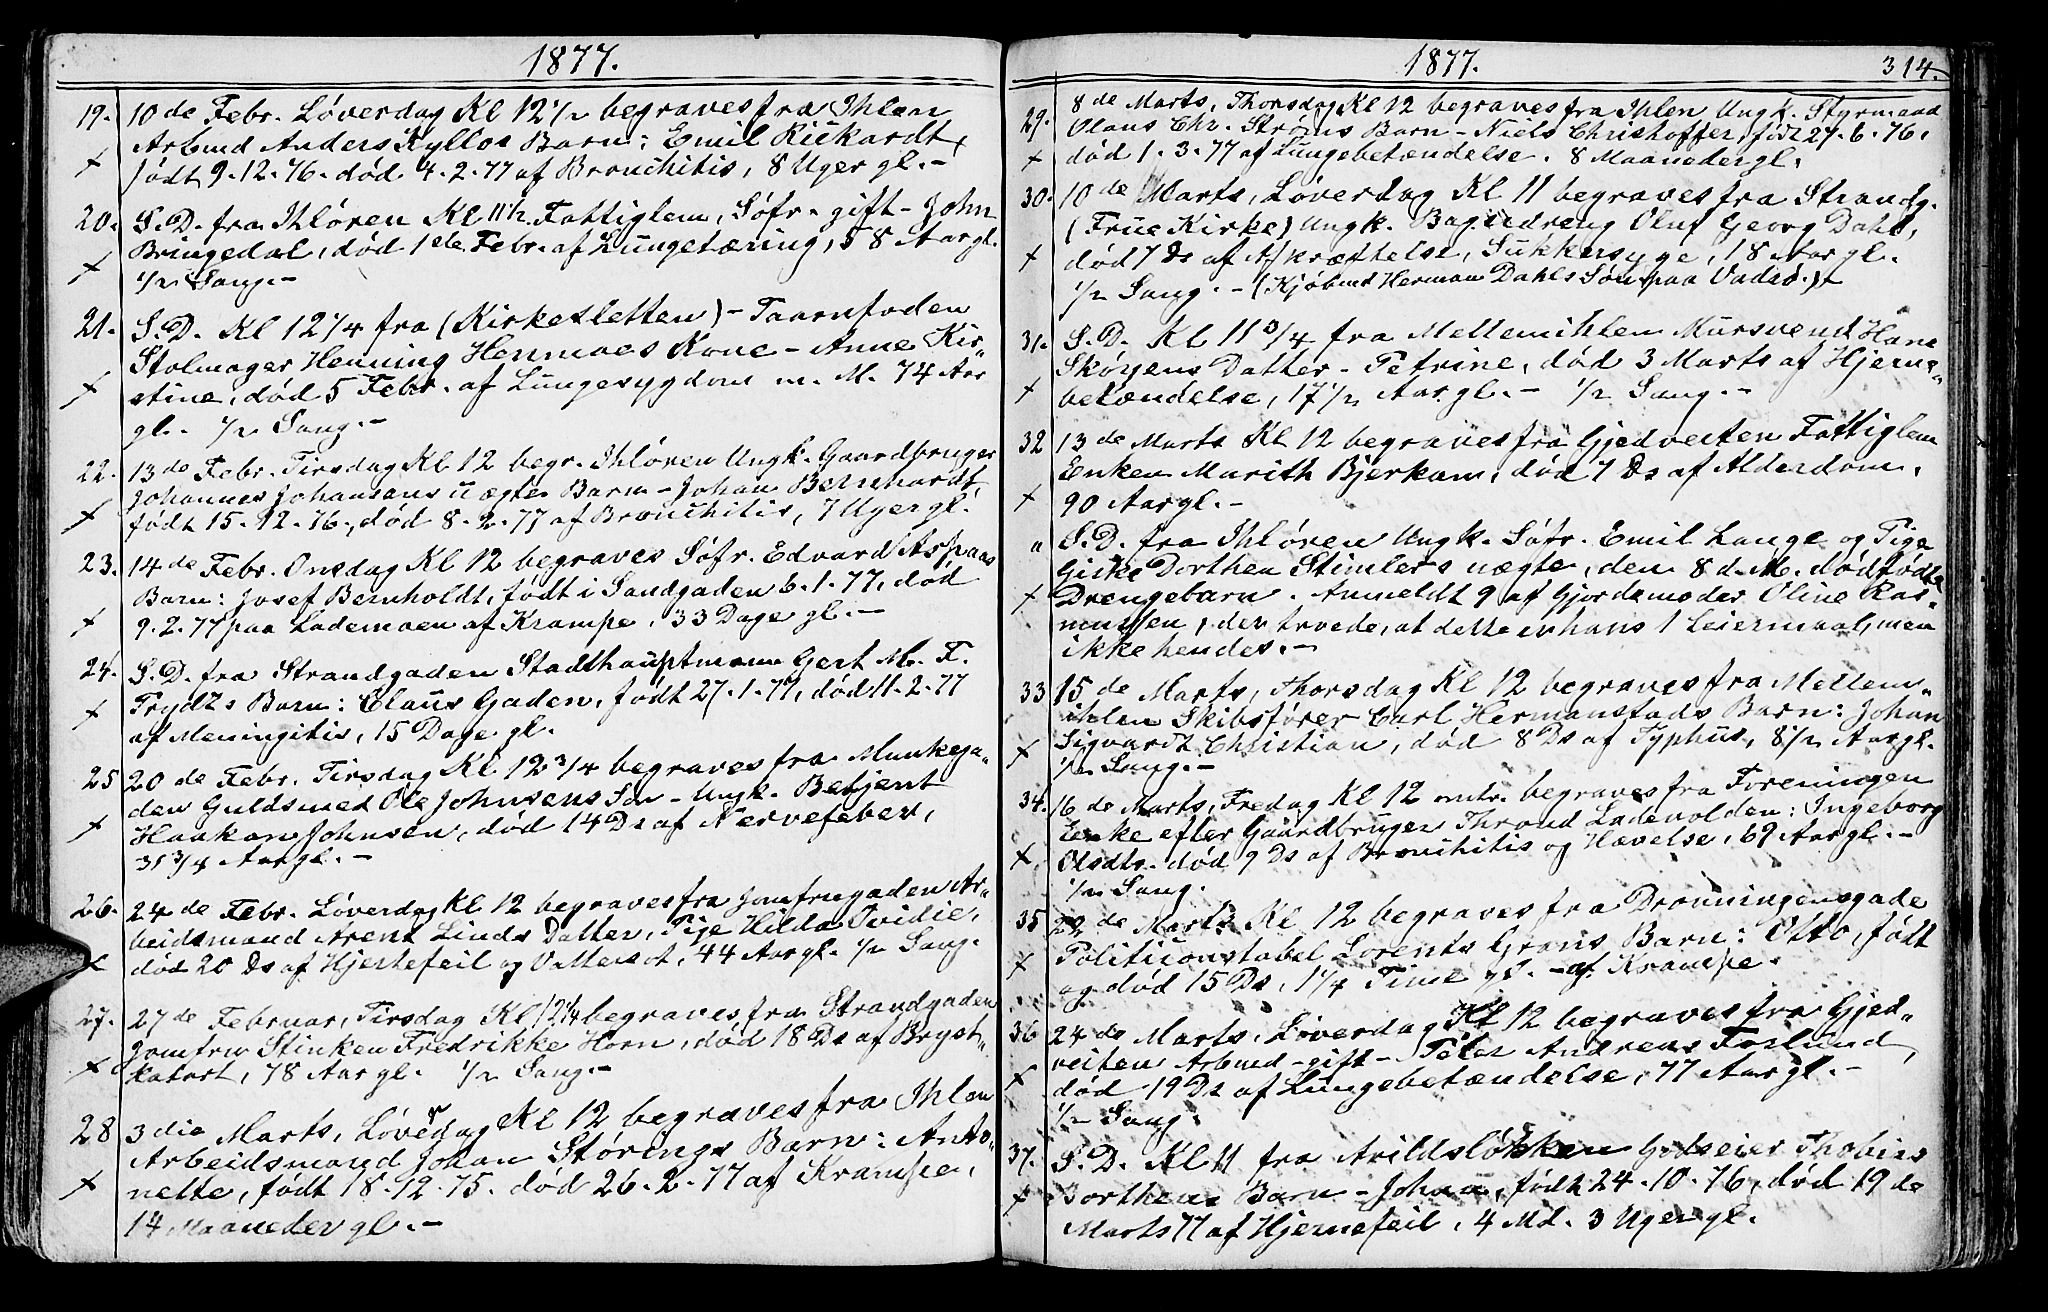 1877.
19. 10 de Febr. Løverdag Kl 12 1/2 begraves fra Ihlen
Arbmd Anders Kyllos Barn: Emil Rickardt,
+ født 9-12-76. død 4-2-77 af Bronchitis, 8 Uger gl.-
20. S.D. fra Ihløren Kl 11 1/2 Fattiglem, Søfr. gift - John
Bringedal, død 1 de Febr. af Lungetæring, 58 Aar gl.
+ 1/2 Sang.-
21. S.D. Kl 12 1/4 fra (Kirkesletten) - Taarnfoden
Stolmager Henning Hermoes Kone - Anne Kir"
+ stine, død 5 Febr. af Lungesygdom m. M. 74 Aar
gl. 1/2 Sang.-
22. 13 de Febr. Tirsdag Kl 12 begr. Ihløren Ungk. Gaardbruger
Johannes Johansens uægte Barn - Johan Bernhardt,
+ født 15-12-76, død 8-2-77 af Bronchitis, 7 Uger gl.
23. 14 de Febr. Onsdag Kl 12 begraves Søfr. Edvard Aspaas
Barn: Josef Bernholdt, født i Sandgaden 6-1-77, død
+ 9-2-77 paa Lademoen af Krampe, 33 Dage gl.-
24. S.D. fra Strandgaden Stadthauptmann Gert M. F.
Frydts Barn: Claus Gaden, født 27-1-77, død 11-2-77
+ af Meningitis, 15 Dage gl.
25 20 de Febr. Tirsdag Kl 12 3/4 begraves fra Munkega"
den Guldsmed Ole Johnsens Søn - Ungk. Betjent
+ Haakon Johnsen, død 14 Ds af Nervefeber,
31 3/4 Aar gl.-
26. 24 de Febr. Løverdag Kl 12 begraves fra Jomfrugaden Ar"
beidsmand Arent Linds Datter, Pige Hilda Ovidie,
+ død 20 Ds af Hjertefeil og Vattersot, 44 Aar gl. 1/2 Sang.
27. 27 de Februar, Tirsdag Kl 12 1/4 begraves fra Strandgaden
Jomfru Stinken Fredrikke Horn, død 18 Ds af Bryst"
+ katarr, 78 Aar gl. 1/2 Sang.-
28 3 die Marts, Løverdag Kl 12 begraves fra Ihlen
Arbeidsmand Johan Størings Barn: Anto"
+ nette, født 18-12-75. død 26-2-77 af Krampe,
14 Maaneder gl.-
1877. 314.
29. 8 de Marts, Thorsdag Kl 12 begraves fra Ihlen Ungk. Styrmand
Olaus Chr. Strøms Barn - Niels Christoffer, født 27-6-76,
+ død 1-3-77 af Lungebetændelse. 8 Maaneder gl.
30. 10 de Marts, Løverdag Kl 11 begraves fra Strandg.
(Frue Kirke) Ungk. Bagerdreng Oluf Georg Dahl,
+ død 7 Ds af Afkræftelse, Sukkersyge, 18 Aar gl.
1/2 Sang.- (Kjøbmd Herman Dahls Søn paa Vadsø.)-
31. S.D. Kl 11 3/4 fra Mellemihlen Mursvend Hans
Skøyens Datter - Petrine, død 3 Marts af Hjerne"
+ betændelse, 17 1/2 Aar gl.- 1/2 Sang.-
32 13 de Marts Kl 12 begraves fra Gjedveiten Fattiglem
Enken Marith Bjerkam, død 7 Ds af Alderdom.
+ 90 Aar gl.-
" S.D. fra Ihløren Ungk. Søfr. Emil Lange og Pige
Giske Dorthea Stimlers uægte, den 8 d. M. dødfødte
+ Drengebarn. Anmeldt 9 af Gjordemoder Oline Ras"
mussen, der troede, at dette er hans 1 Leiermaal, men
ikke hendes.-
33 15 de Marts, Thorsdag Kl 12 begraves fra Mellem"
ihlen Skibsfører Carl Hermanstads Barn: Johan
+ Sigvardt Christian, død 8 Ds af Typhus, 8 1/2 Aar gl.
1/2 Sang.-
34. 16 de Marts, Fredag Kl 12 omtr. begraves fra Foreningen
Enke efter Gaardbruger Thrond Ladevolden: Ingeborg
+ Olsdtr. død 9 Ds af Bronchitis og Hævelse, 69 Aar gl.-
1/2 Sang.
35 de Marts Kl 12 begraves fra Dronningensgade
Politiconstabel Lorents Grans Barn: Otto, født
+ og død 15 Ds, 1 1/4 Time gl. - af Krampe.
36 24 de Marts, Løverdag Kl 12 begraves fra Gjed"
veiten Arbmd - gift - Peter Andreas Forlund,
+ død 19 Ds af Lungebetændelse, 77 Aar gl.-
1/2 Sang.
37. S.D. Kl 11 fra Arildsløkken Godseier Thobias
+ Dorthens Barn - Johan, født 24-10-76, død 19 de
Marts 77 af Hjernefeil, 4 Md. 3 Uger gl.